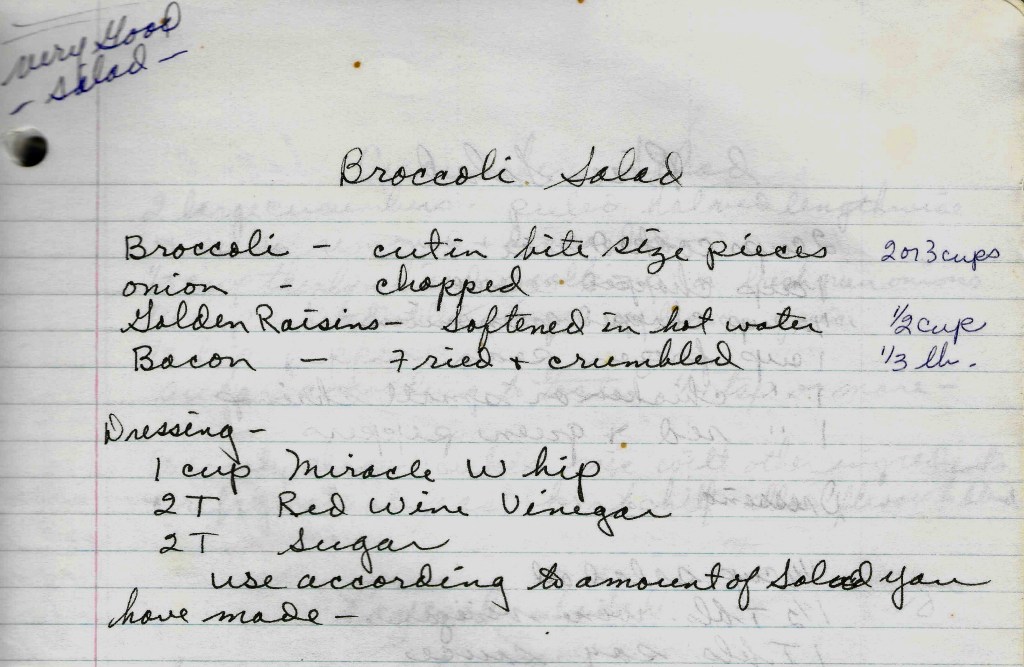 Very Good
- Salad -
Broccoli Salad
Broccoli - cut in bite size pieces 2 or 3 cups
onion - chopped
Golden Raisins - Softened in hot water 1/2 cup
Bacon - Fried + crumbled 1/3 lb.
Dressing -
1 cup Miracle Whip
2T Red Wine Vinegar
2T Sugar
use according to amount of Salad you
have made -